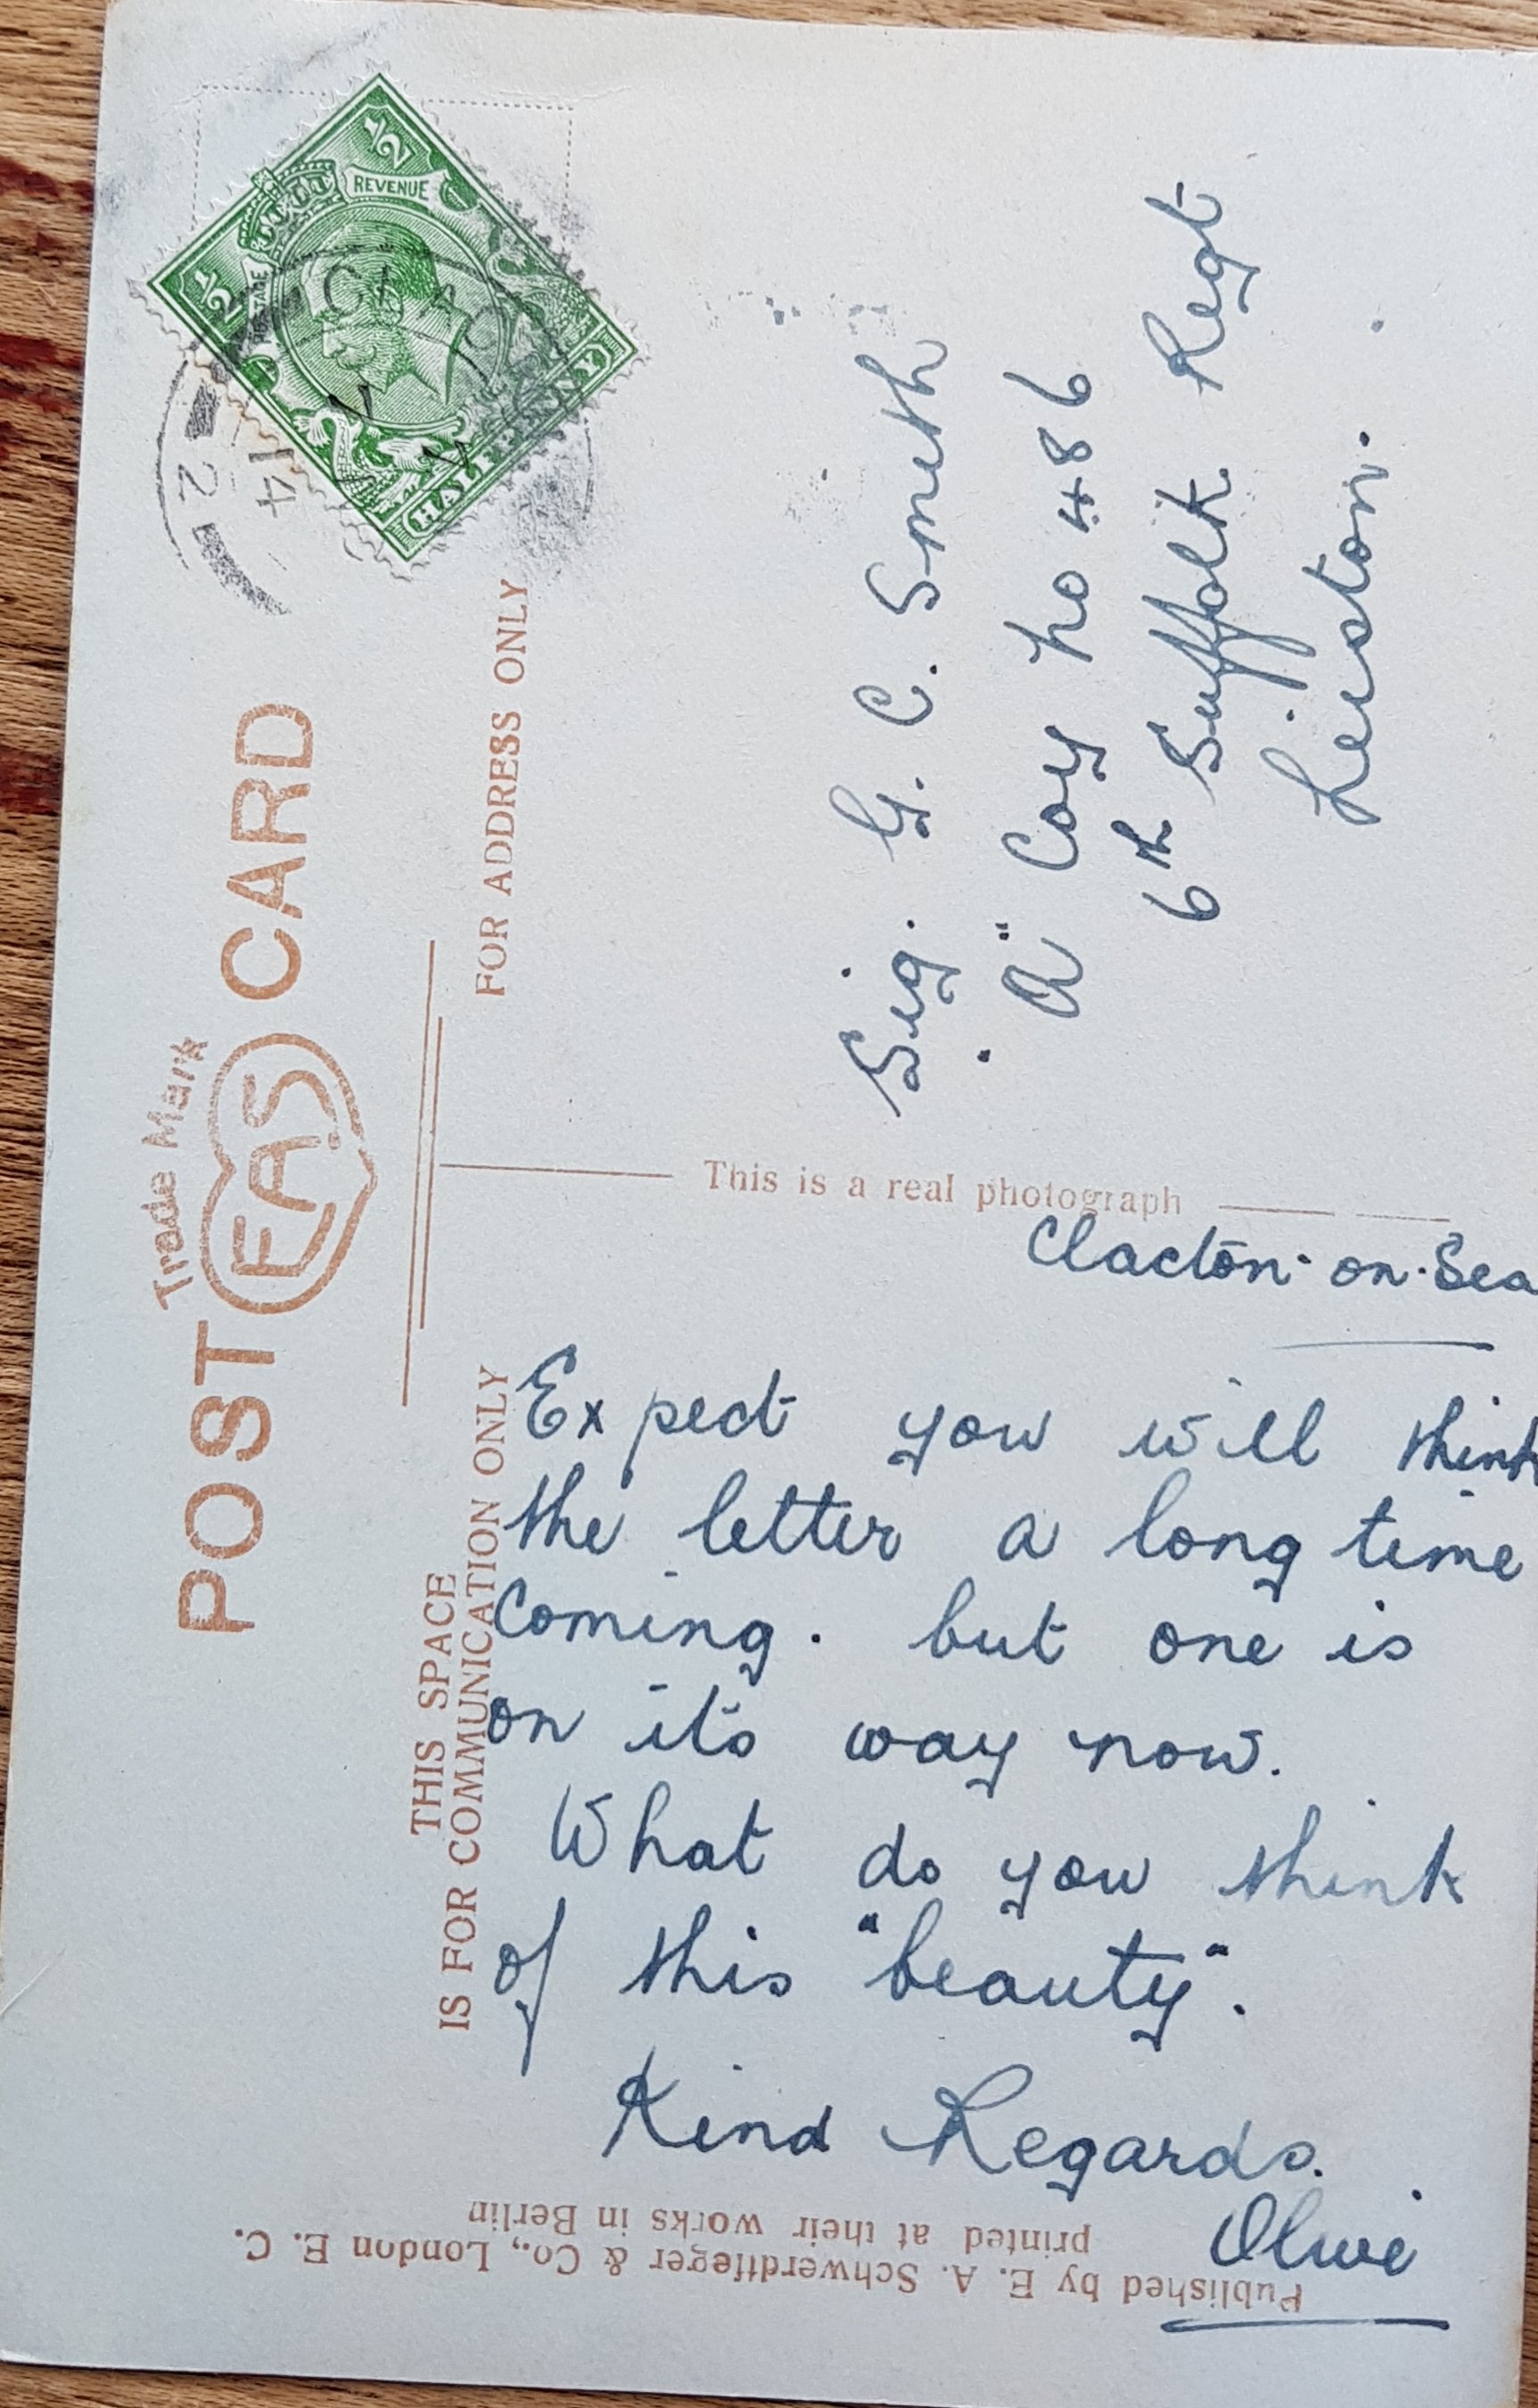 Trade Mark
POST EAS CARD
THIS SPACE
IS FOR COMMUNICATION ONLY
FOR ADDRESS ONLY
½ ½
POSTAGE REVENUE
HALFPENNY
14
2
This is a real photograph
Clacton-on-Sea
Expect you will think
the letter a long time
Coming. but one is
on it's way now.
What do you think
of this "beauty".
Kind Regards.
Olive
Sig. G. C. Smith
"A" Coy No 486
6th Suffolk Regt
Leiston.
Published by E. A. Schwerdtfeger & Co., London E. C.
printed at their works in Berlin